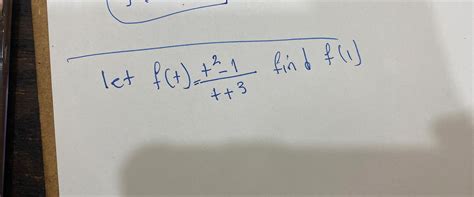 let f(t) = t²-1 / t+3 find f(1)